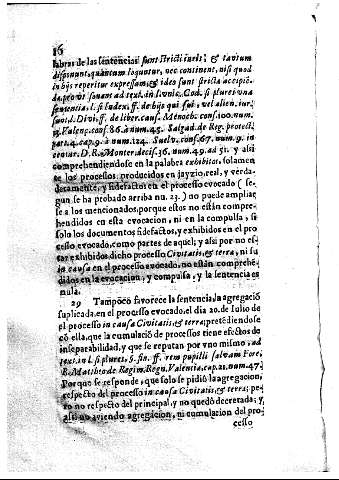 16
labras de las sentencias sunt stricti iuris; & tantum
disponunt, quantum loquntur, nec continent, nisi quod
in hijs reperitur expressum, & ideo sunt stricta accipiē-
da, prout sonant ad text. in l. vnic. Cod. si plures vna
sententia, l. si Index, ff. de hijs qui sui, vel alien. iur.
sunt, l. Divi, ff. de liber. caus. Menoch. cons. 100. num.
13. Valenç. cons. 86. à num. 45. Salgad. de Reg. protect.
part. 4. cap. 9. à num. 124. Suelv. cons. 67. num. 9. in
centur. D. R. Monter. decis. 36. num. 49. ad 51. y assi
comprehendiendose en la palabra exhibitos, solamen
te los processos, producidos en jayzio, real, y verda-
deramente, y fidefactos en el processo evocado (se-
gun se ha probado arriba nu. 23.) no puede ampliar
se à los mencionados, porque estos no están compre-
hendidos en esta evocacion, ni en la compulsa, si
solo los documentos fidefactos, y exhibidos en el pro
cesso evocado, como partes de aquel; y assi por no es-
tar exhibidos dicho processo Civitatis, & terra, ni su
in causa en el processo evocado, no están comprehē-
didos en la evocacion, y compulsa, y la sentencia es
nula.
29 Tampoco favorece la sentencia, la agregaciō
suplicada, en el processo evocado, el dia 20. de Julio de
el processo in causa Civitatis, & terra; pretēdiendose
cō ella, que la cumulaciō de processos tiene efectos de
inseparabilidad, y que se reputan por vno mismo, ad
text. in l. si plures, §. fin. ff. rem pupilli salvam Fore,
B. Mattheo de Regim. Regn. Valentia, cap. 21. num. 47.
Porque se responde, que solo se pidiò la agregacion,
respecto del processo in causa Civitatis, & terra; pe-
ro no respecto del principal, y no quedò decretada; y
assi no aviendo agregacion, ni cumulacion del pro-
cesso